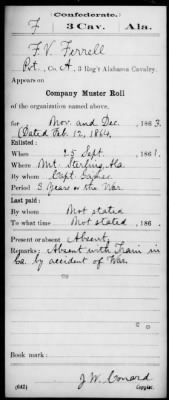 Confederate.
F 3 Cav. Ala.
F. V. Ferrell
Pvt., Co. A, 3 Reg't Alabama Cavalry.
Appears on
Company Muster Roll
of the organization named above,
for Nov. and Dec., 1863.
(Dated Feb. 12, 1864.
Enlisted:
When 25 Sept., 1861.
Where Mt. Sterling Ala
By whom Capt.
Period 3 Years or the War
Last paid:
By whom Not stated
To what time Not stated, 186 .
Present or absent Absent
Remarks: Absent with Train in
Ga. by accident of War.
Book mark:
J. W. Conard
(642) Copyist.